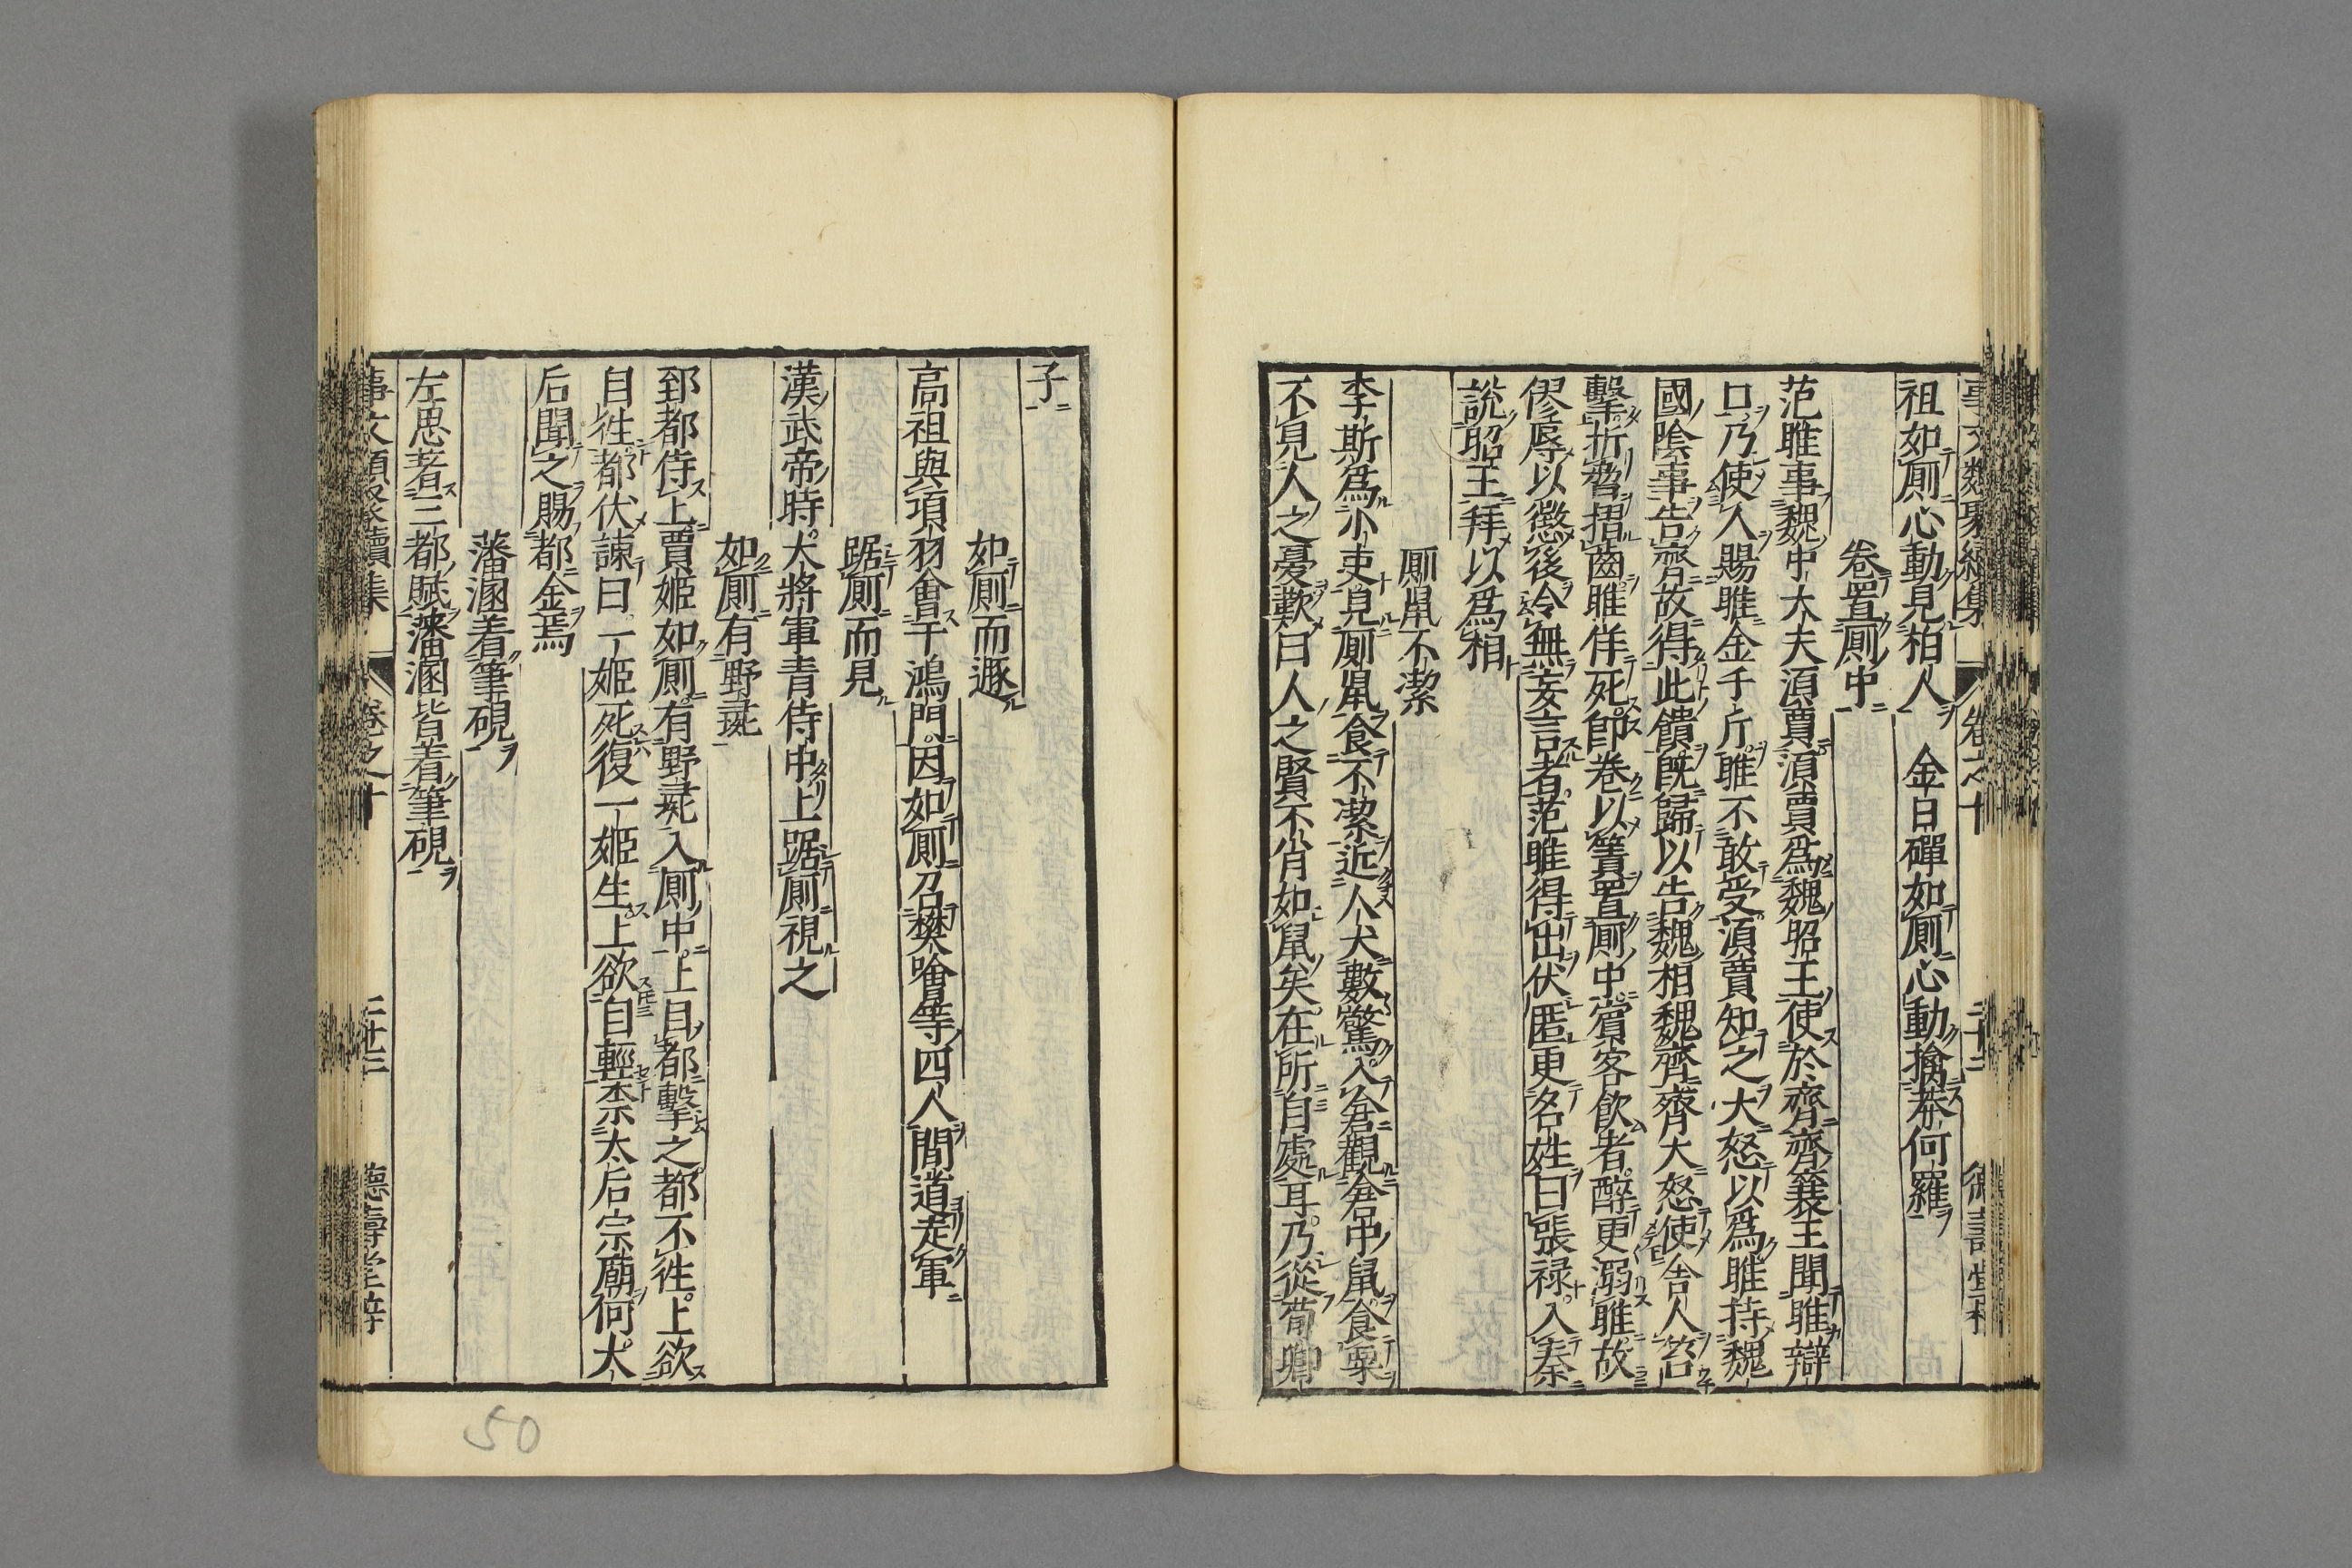 事文類聚續集 卷之十 二十三 德壽堂梓
祖如厠心動見柏人 金日磾如厠心動擒莽何羅
卷置厠中
范雎事魏中大夫湏賈湏賈爲魏昭王使於齊齊襄王聞雎辯
口乃使人賜雎金千斤雎不敢受湏賈知之大怒以爲雎持魏
國陰事告齊故得此饋旣歸以告魏相魏齊齊大怒使舍人笞
擊折脅摺齒雎佯死卽卷以簀置厠中賔客飮者醉更溺雎故
僇辱以懲後令無妄言者范雎得出伏匿更名姓曰張禄入秦
說昭王拜以爲相
厠鼠不潔
李斯爲小吏見厠鼠食不潔近人犬數驚入倉觀倉中鼠食粟
不見人之憂歎曰人之賢不肖如鼠矣在所自處耳乃從荀卿
子
如厠而遯
高祖與項羽會于鴻門因如厠召樊噲等四人間道走軍
踞厠而見
漢武帝時大將軍青侍中上踞厠視之
如厠有野彘
郅都侍上賈姬如厠有野彘入厠中上目都擊之都不徃上欲
自徃都伏諫曰一姬死復一姬生上欲自輕柰太后宗廟何太
后聞之賜都金焉
藩溷着筆硯
左思著三都賦藩溷皆着筆硯
事文類聚續集 卷之十 二十三 德壽堂梓
50